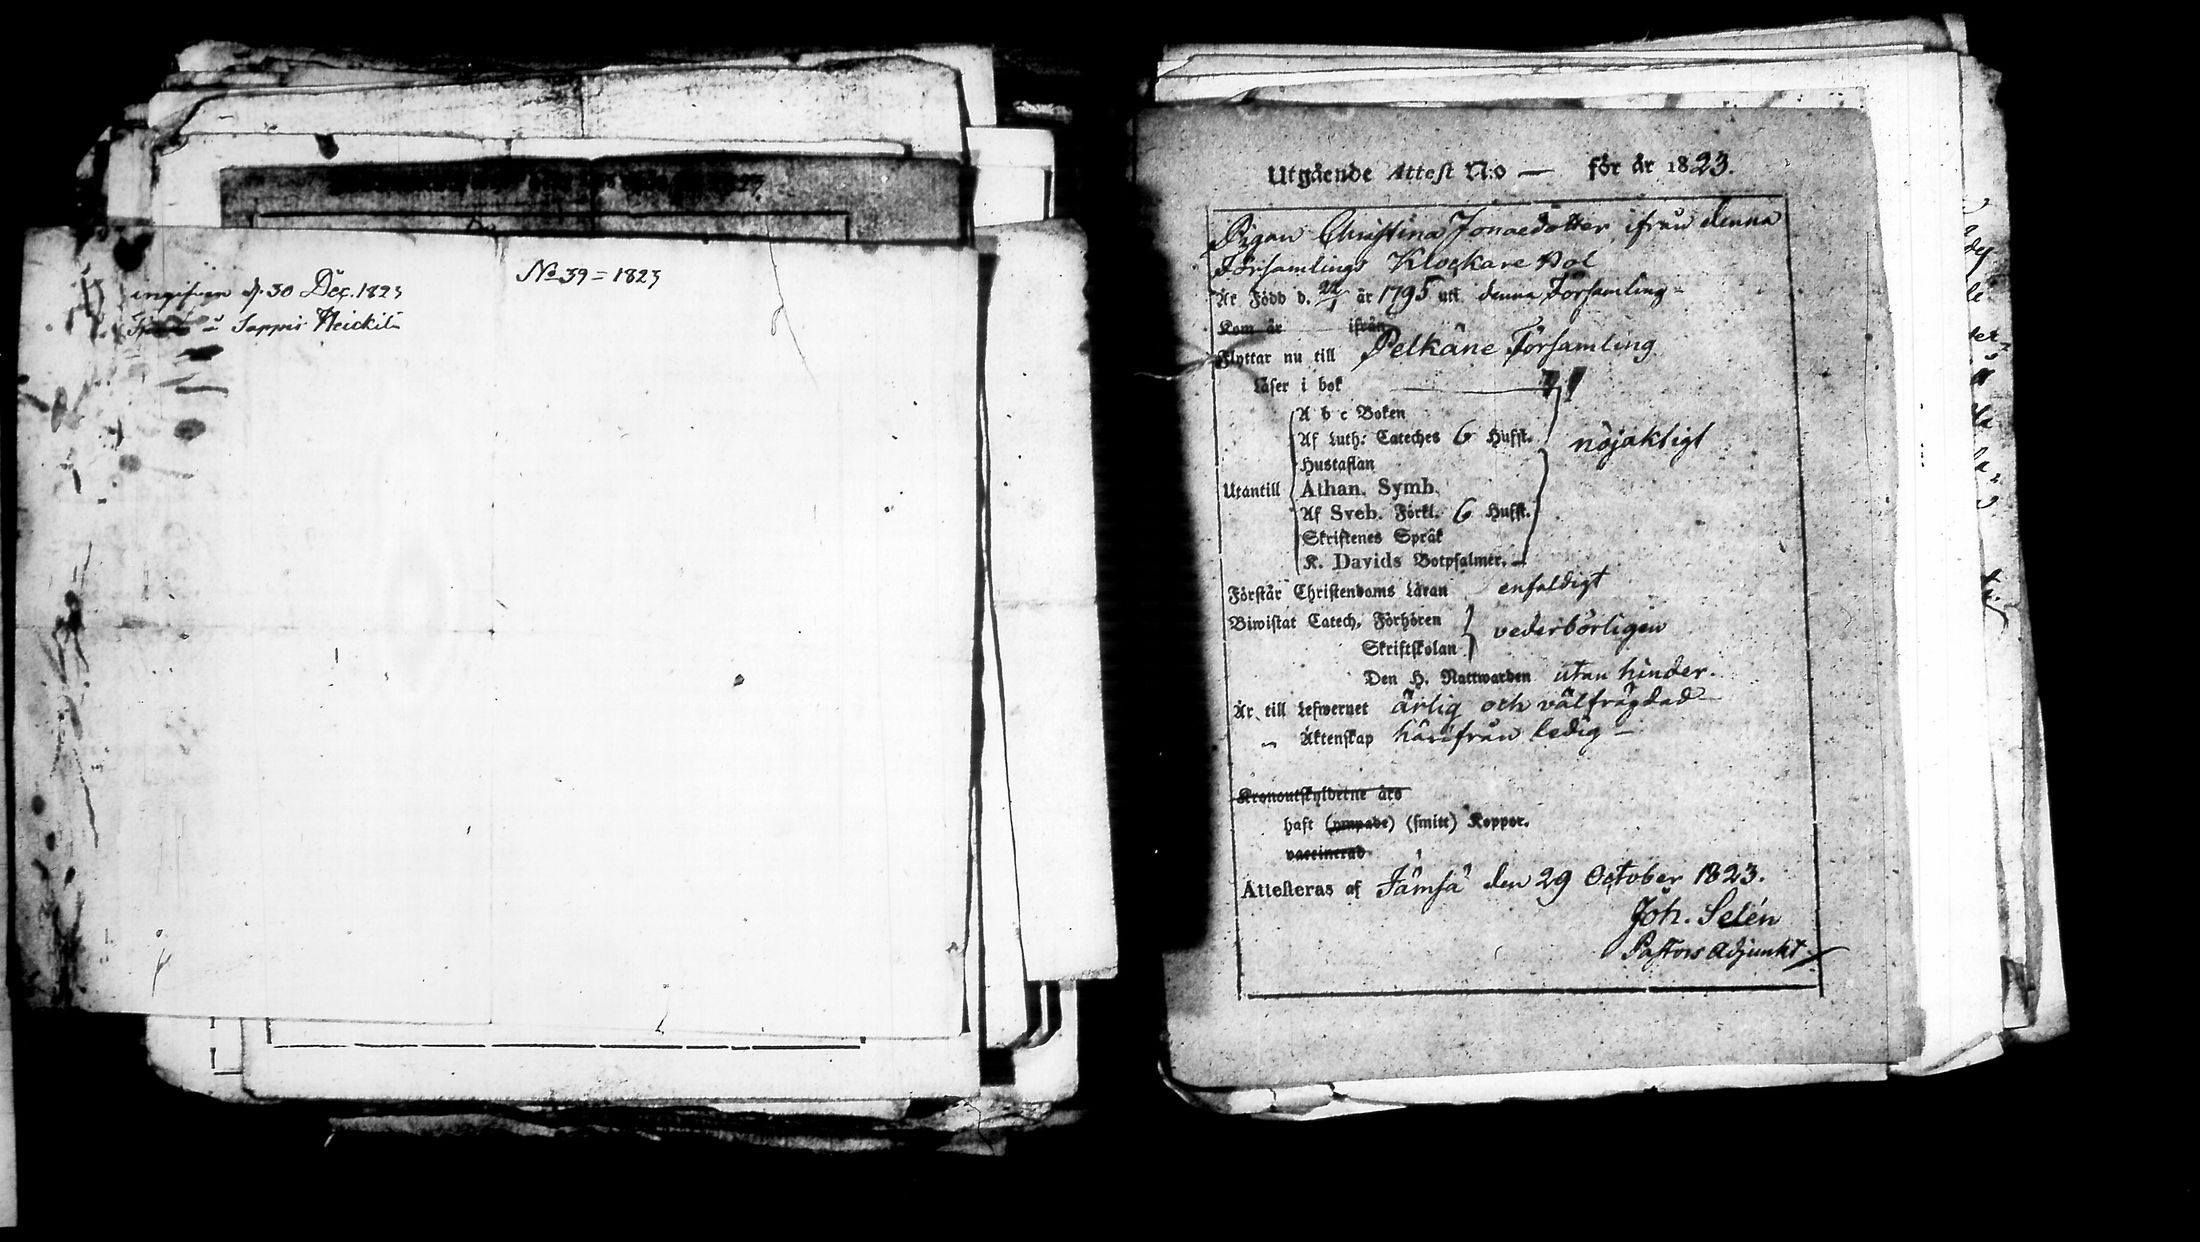 No 39 = 1823
ingifven d. 30 Dec. 1823
Sappis Heickilä
Utgående Attest N:o — för år 1823.
Pigan Christina Jonaedotter ifrån denna
Församlings Klockare Bol
Är Född d. 22/1 år 1795 uti denna Församling
Kom år ifrån
Flyttar nu till Pelkäne Församling
Läser i bok
A b c Boken
Af Luth: Cateches 6 Hufst.
nöjaktigt
Hustaflan
Utantill Athan. Symb.
Af Sveb. Förkl. 6 Hufst.
Skriftenes Språk
K. Davids Botpsalmer.
Förstår Christendoms Läran enfaldigt
Biwistat Catech. Förhören
vederbörligen
Skriftskolan
Den H. Nattwarden utan hinder.
Är till Lefwernet ärlig och välfrägdad
„ Äktenskap härifrån ledig —
Kronoutskylderne års
haft (ympade) (smitt) Koppor.
vaccinerad
Attesteras af Jämsä den 29 October 1823.
Joh. Selén
Pastors Adjunkt